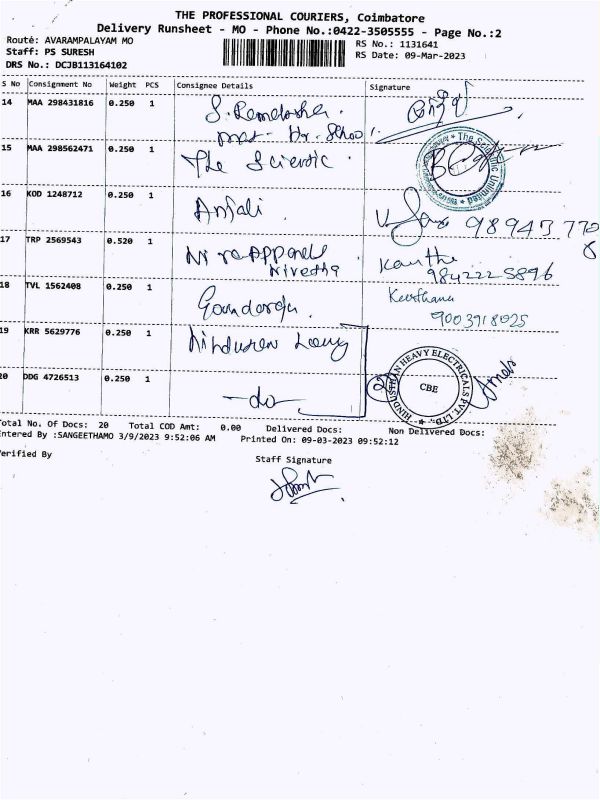 THE PROFESSIONAL COURIERS, Coimbatore
Delivery Runsheet - MO - Phone No.:0422-3505555 - Page No.:2
Route: AVARAMPALAYAM MO
RS No.: 1131641
Staff: PS SURESH
RS Date: 09-Mar-2023
DRS No.: DCJB113164102
S No Consignment No Weight PCS Consignee Details Signature
14 MAA 298431816 0.250 1
15 MAA 298562471 0.250 1 The Scientific
The Scientific Unlimited
16 KOD 1248712 0.250 1 Anjali
98943 770
17 TRP 2569543 0.520 1
Nivetha
984222 5896
18 TVL 1562408 0.250 1
Keerthana
9003918025
19 KRR 5629776 0.250 1
20 DDG 4726513 0.250 1 -do-
HINDUSTHAN HEAVY ELECTRICALS PVT LTD
CBE
Total No. Of Docs: 20 Total COD Amt: 0.00 Delivered Docs: Non Delivered Docs:
Entered By :SANGEETHAMO 3/9/2023 9:52:06 AM Printed On: 09-03-2023 09:52:12
Verified By
Staff Signature